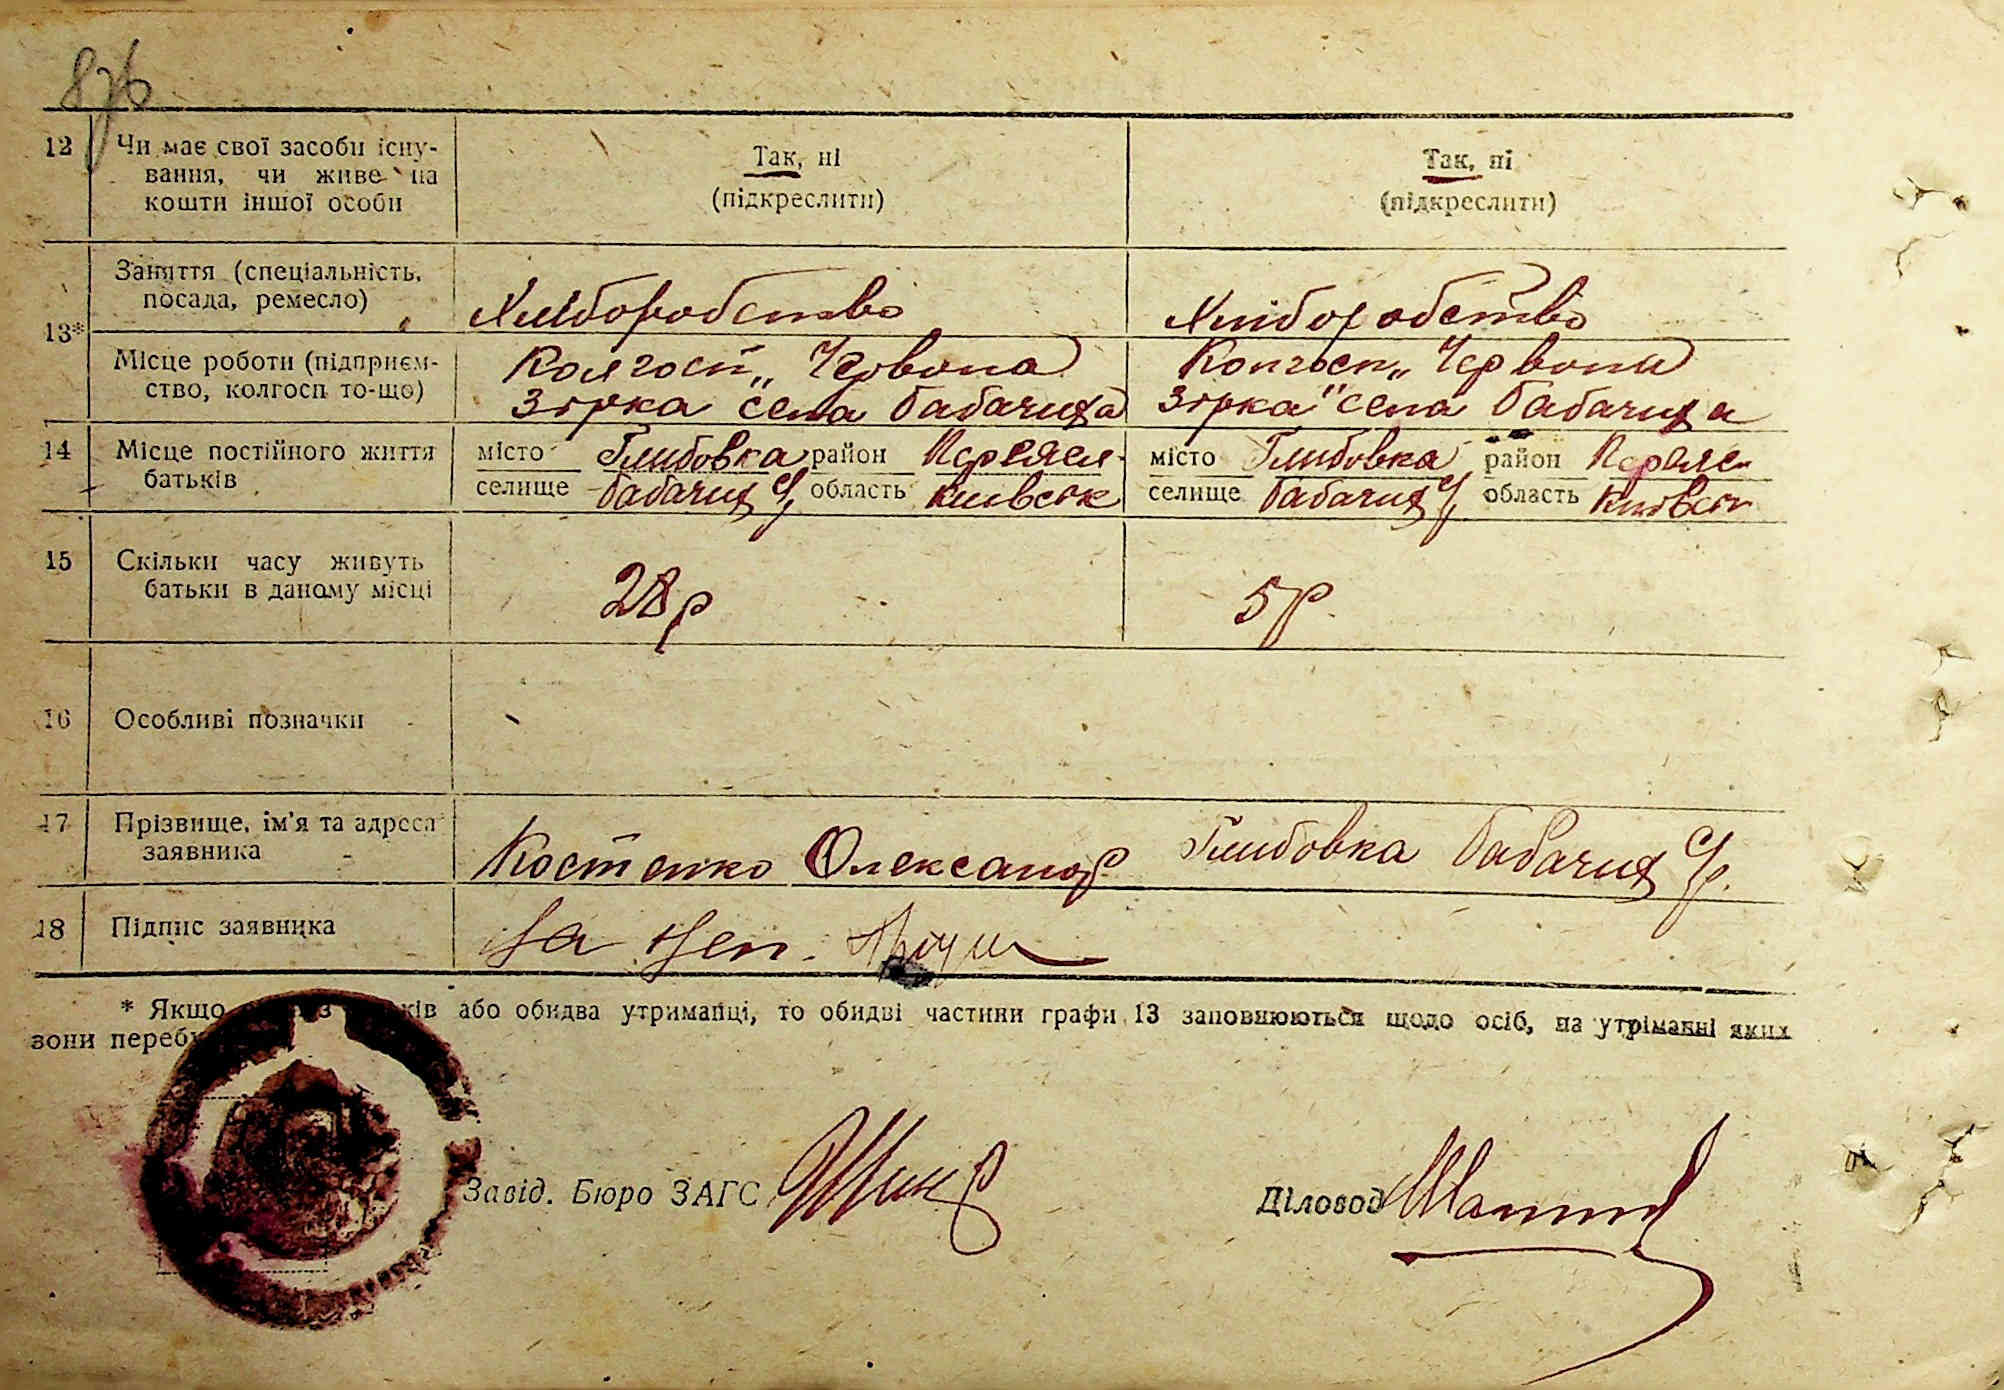 876
12 Чи має свої засоби існу-
вання, чи живе на
кошти іншої особи
Так, ні
(підкреслити)
Так, ні
(підкреслити)
13* Заняття (спеціальність,
посада, ремесло)
Хліборобство
Хліборобство
Місце роботи (підприєм-
ство, колгосп то-що)
Колгосп „Червона
Зірка села Бабачиха
Колгосп „Червона
Зірка" села Бабачиха
14 Місце постійного життя
батьків
місто Глибовка район Переясл
селище Бабачих С/р область Київськ
місто Глибовка район Переяс
селище Бабачих С/р область Київськ
15 Скільки часу живуть
батьки в даному місці
28 р
5 р.
16 Особливі позначки
17 Прізвище, ім'я та адреса
заявника
Костенко Олександр Глибовка Бабачих С/р.
18 Підпис заявника
За неп.
* Якщо з ків або обидва утриманці, то обидві частини графи 13 заповнюються щодо осіб, на утріманні яких
вони перебу
Завід. Бюро ЗАГС
Діловод